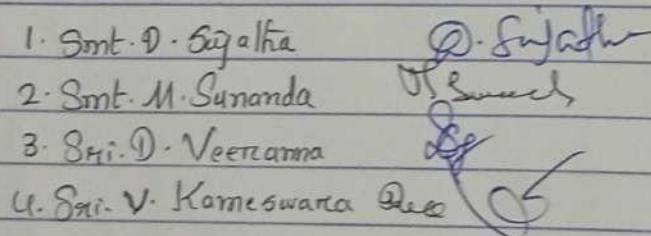 1. Smt. D. Sujatha D. Sujatha
2. Smt. M. Sunanda
3. Sri. D. Veeranna
4. Sri. V. Kameswara Rao